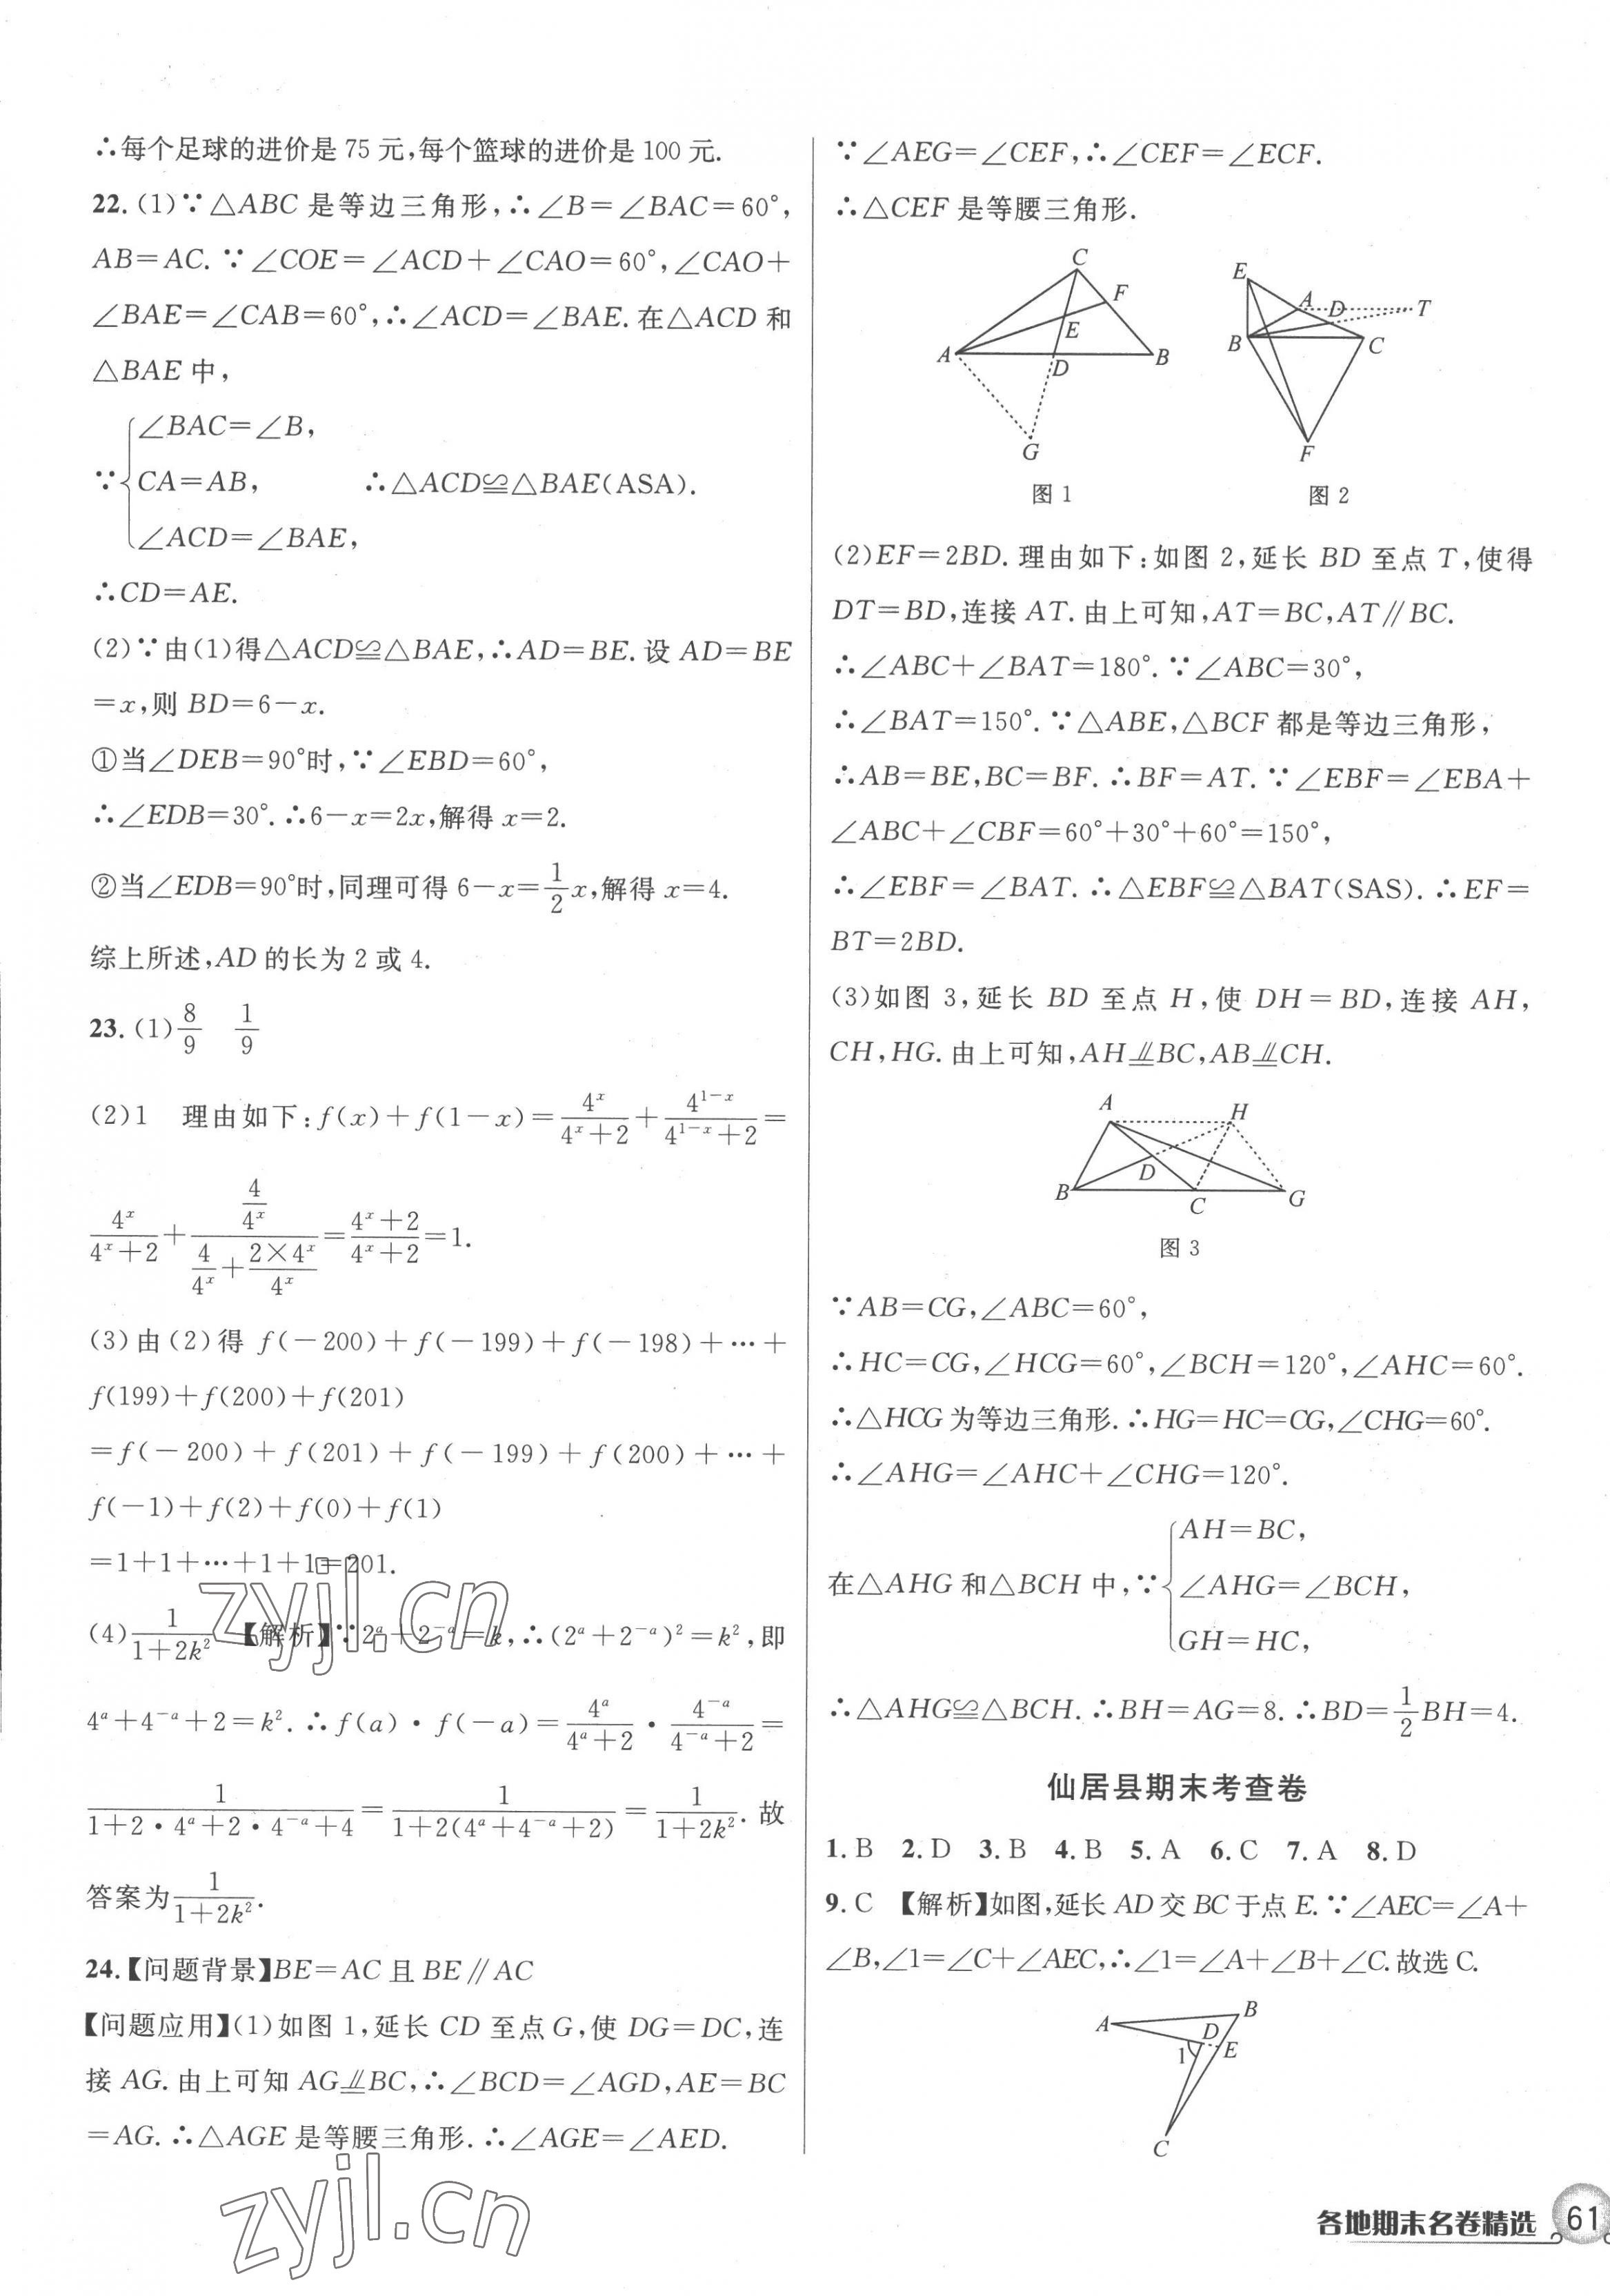 ∴每个足球的进价是 75 元,每个篮球的进价是 100 元.
22.(1)∵△ABC 是等边三角形,∴∠B=∠BAC=60°,
AB=AC.∵∠COE=∠ACD+∠CAO=60°,∠CAO+
∠BAE=∠CAB=60°,∴∠ACD=∠BAE.在△ACD 和
△BAE 中,
∠BAC=∠B,
∵{CA=AB, ∴△ACD≌△BAE(ASA).
∠ACD=∠BAE,
∴CD=AE.
(2)∵由(1)得△ACD≌△BAE,∴AD=BE.设 AD=BE
=x,则 BD=6-x.
①当∠DEB=90°时,∵∠EBD=60°,
∴∠EDB=30°.∴6-x=2x,解得 x=2.
②当∠EDB=90°时,同理可得 6-x=1/2x,解得 x=4.
综上所述,AD 的长为 2 或 4.
23.(1)8/9 1/9
(2)1 理由如下:f(x)+f(1-x)=4^x/(4^x+2)+4^(1-x)/(4^(1-x)+2)=
4^x/(4^x+2)+(4/4^x)/(4/4^x+(2×4^x)/4^x)=(4^x+2)/(4^x+2)=1.
(3)由(2)得 f(-200)+f(-199)+f(-198)+…+
f(199)+f(200)+f(201)
=f(-200)+f(201)+f(-199)+f(200)+…+
f(-1)+f(2)+f(0)+f(1)
=1+1+…+1+1=201.
(4)1/(1+2k²) 【解析】∵2^a+2^(-a)=k,∴(2^a+2^(-a))²=k²,即
4^a+4^(-a)+2=k².∴f(a)·f(-a)=4^a/(4^a+2)·4^(-a)/(4^(-a)+2)=
1/(1+2·4^a+2·4^(-a)+4)=1/(1+2(4^a+4^(-a)+2))=1/(1+2k²).故
答案为1/(1+2k²).
24.【问题背景】BE=AC 且 BE∥AC
【问题应用】(1)如图 1,延长 CD 至点 G,使 DG=DC,连
接 AG.由上可知 AG⥿BC,∴∠BCD=∠AGD,AE=BC
=AG.∴△AGE 是等腰三角形.∴∠AGE=∠AED.
∵∠AEG=∠CEF,∴∠CEF=∠ECF.
∴△CEF 是等腰三角形.
C
F
E
A
D
B
G
图 1
E
A
D
T
B
C
F
图 2
(2)EF=2BD.理由如下:如图 2,延长 BD 至点 T,使得
DT=BD,连接 AT.由上可知,AT=BC,AT∥BC.
∴∠ABC+∠BAT=180°.∵∠ABC=30°,
∴∠BAT=150°.∵△ABE,△BCF 都是等边三角形,
∴AB=BE,BC=BF.∴BF=AT.∵∠EBF=∠EBA+
∠ABC+∠CBF=60°+30°+60°=150°,
∴∠EBF=∠BAT.∴△EBF≌△BAT(SAS).∴EF=
BT=2BD.
(3)如图 3,延长 BD 至点 H,使 DH=BD,连接 AH,
CH,HG.由上可知,AH⥿BC,AB⥿CH.
A
H
D
B
C
G
图 3
∵AB=CG,∠ABC=60°,
∴HC=CG,∠HCG=60°,∠BCH=120°,∠AHC=60°.
∴△HCG 为等边三角形.∴HG=HC=CG,∠CHG=60°.
∴∠AHG=∠AHC+∠CHG=120°.
AH=BC,
在△AHG 和△BCH 中,∵{∠AHG=∠BCH,
GH=HC,
∴△AHG≌△BCH.∴BH=AG=8.∴BD=1/2BH=4.
仙居县期末考查卷
1.B 2.D 3.B 4.B 5.A 6.C 7.A 8.D
9.C 【解析】如图,延长 AD 交 BC 于点 E.∵∠AEC=∠A+
∠B,∠1=∠C+∠AEC,∴∠1=∠A+∠B+∠C.故选 C.
A
B
D
E
1
C
zyjl.cn
zyjl.cn
各地期末名卷精选 61